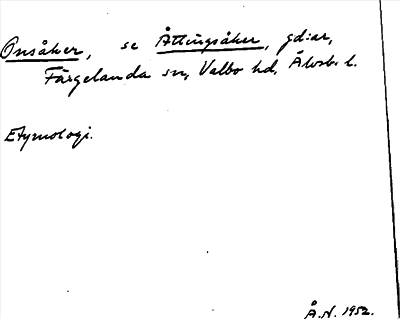 Onsåker, se Åttingsåker, gd:ar,
Färgelanda sn, Valbo hd, Älvsb. l.
Etymologi.
Å.N. 1952.